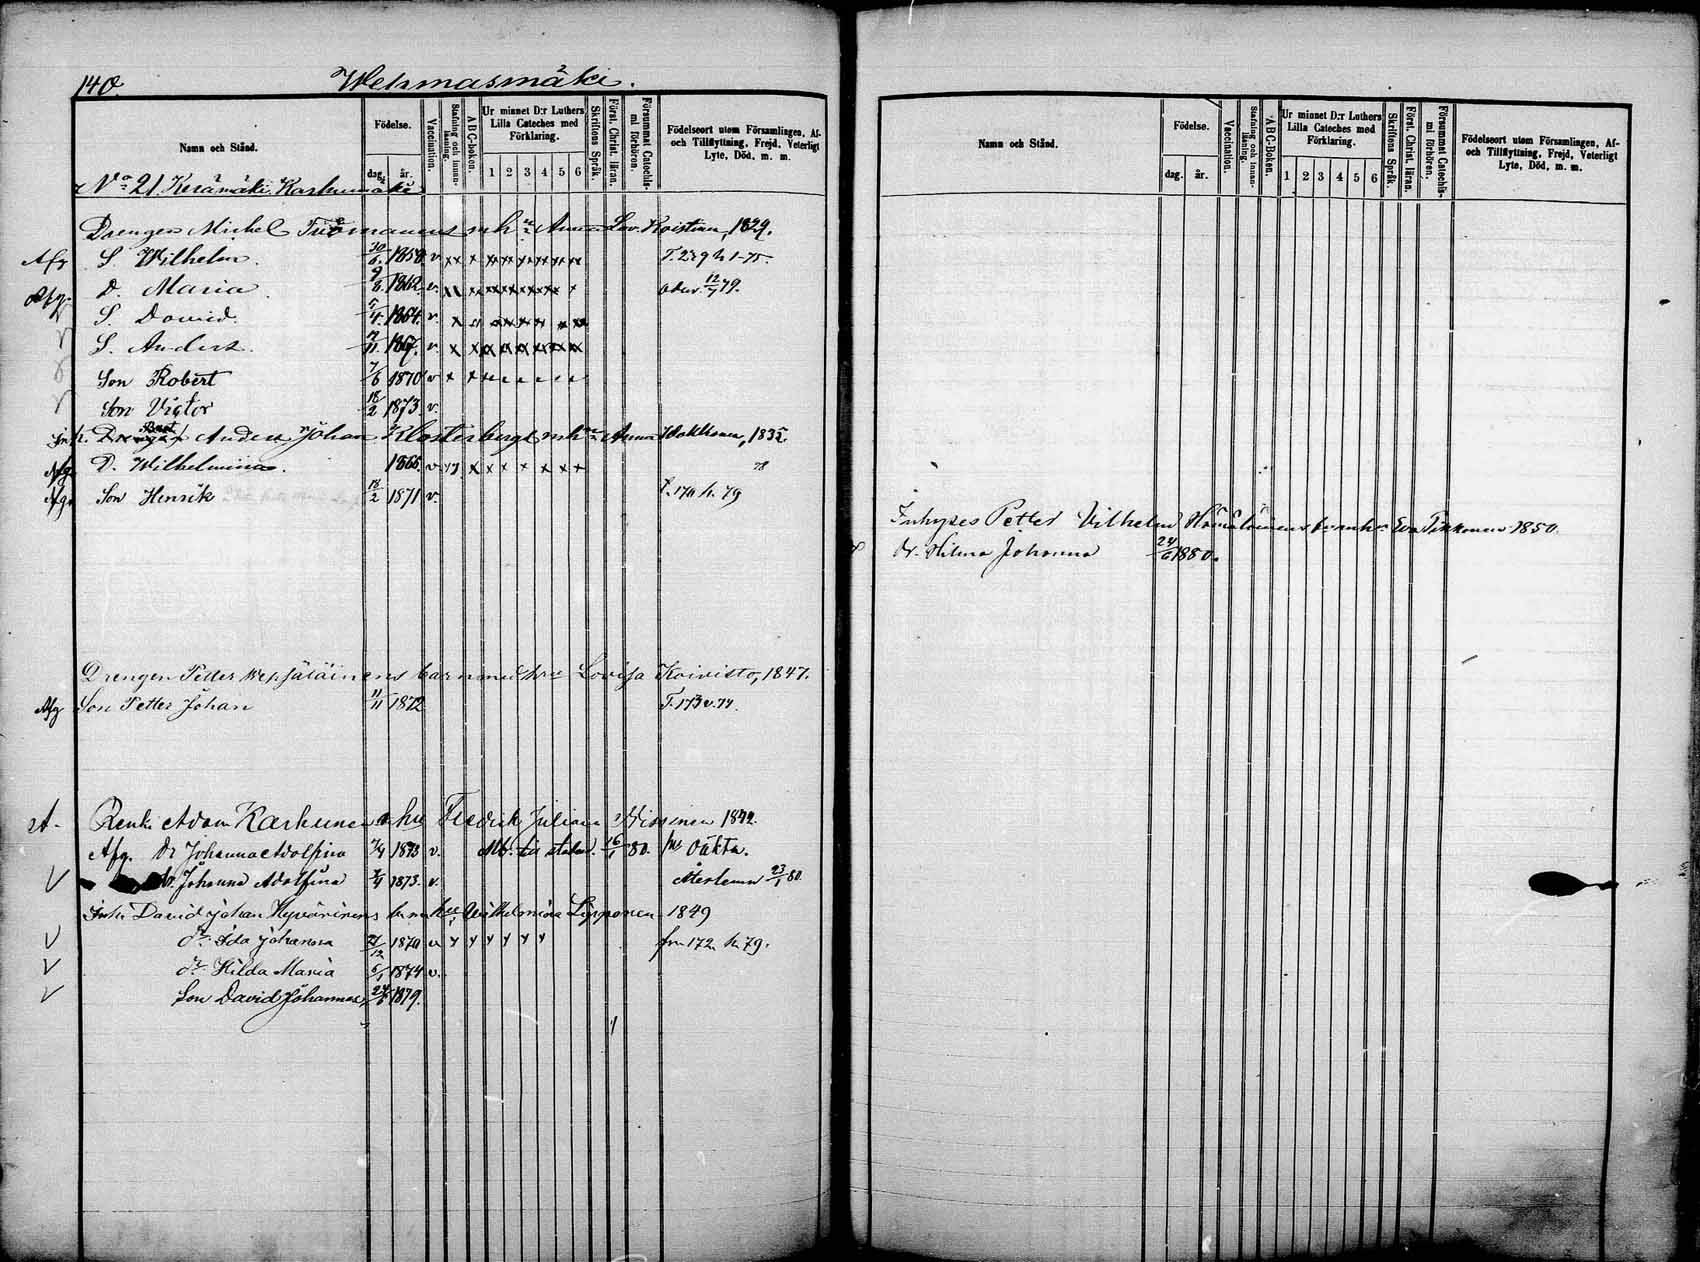 140.
Wehmasmäki.
Namn och Stånd.
Födelse.
dag.
år.
Vaccination.
Stafning och innan-läsning.
ABC-boken.
Ur minnet D:r Luthers Lilla Cateches med Förklaring.
1 2 3 4 5 6
Skriftens Språk.
Först. Christ. läran.
Försummat Catechis-mi förhören.
Födelseort utom Församlingen, Af- och Tillflyttning, Frejd, Veterligt Lyte, Död, m. m.
No 21. Kerämäki, Karhumäki
Drengen Michel Tuomainens m h:u Anna Lov. Koistinen, 1829.
Afg S. Wilhelm. 30/5. 1858. v. T. 279 h 1-75.
Afg. D. Maria. 9/8. 1862. v. 12/7 79.
S. David. 5/4. 1864. v.
S. Anders. 12/11. 1867. v.
Son Robert 7/6 1870 v
Son Victor 18/2 1873. v.
Inh. Anders Johan Klosterbergs m h:u Anna 1835.
Afg. D. Wilhelmina. 1865. v. 78
Afg. Son Henrik 18/2 1871 v. 170 h. 79
Drengen Petter Wepsäläinens barn med h:u Lovisa Koivisto, 1847.
Afg Son Petter Johan 11/11 1872 T. 173 v. 74.
Renki Adam Karhunen o hu Fredrik Juliana Nissinen 1842.
Afg. Dr Johanna Adolfina 7/4 1873 v. Mb. till staden. 16/1 80. Oäkta.
Dr. Johanna Adolfina 7/4 1873. v. Återkom 23/1 80.
Inhs David Johan Hyvärinens b. m h:u Wilhelmina Lipponen 1849
dr Ida Johanna 21/12 1870 v fr. 172 h. 79.
dr Hilda Maria 6/1 1874 v.
Son David Johannes, 24/6 1879.
Namn och Stånd.
Födelse.
dag.
år.
Vaccination.
Stafning och innan-läsning.
ABC-Boken.
Ur minnet D:r Luthers Lilla Cateches med Förklaring.
1 2 3 4 5 6
Skriftens Språk.
Först. Christ. läran.
Försummat Catechis-mi förhören.
Födelseort utom Församlingen, Af- och Tillflyttning, Frejd, Veterligt Lyte, Död, m. m.
Inhyses Petter Vilhelm Hämäläinens b. m h:u Eva Pikkonen 1850.
dr. Hilma Johanna 24/6 1880.